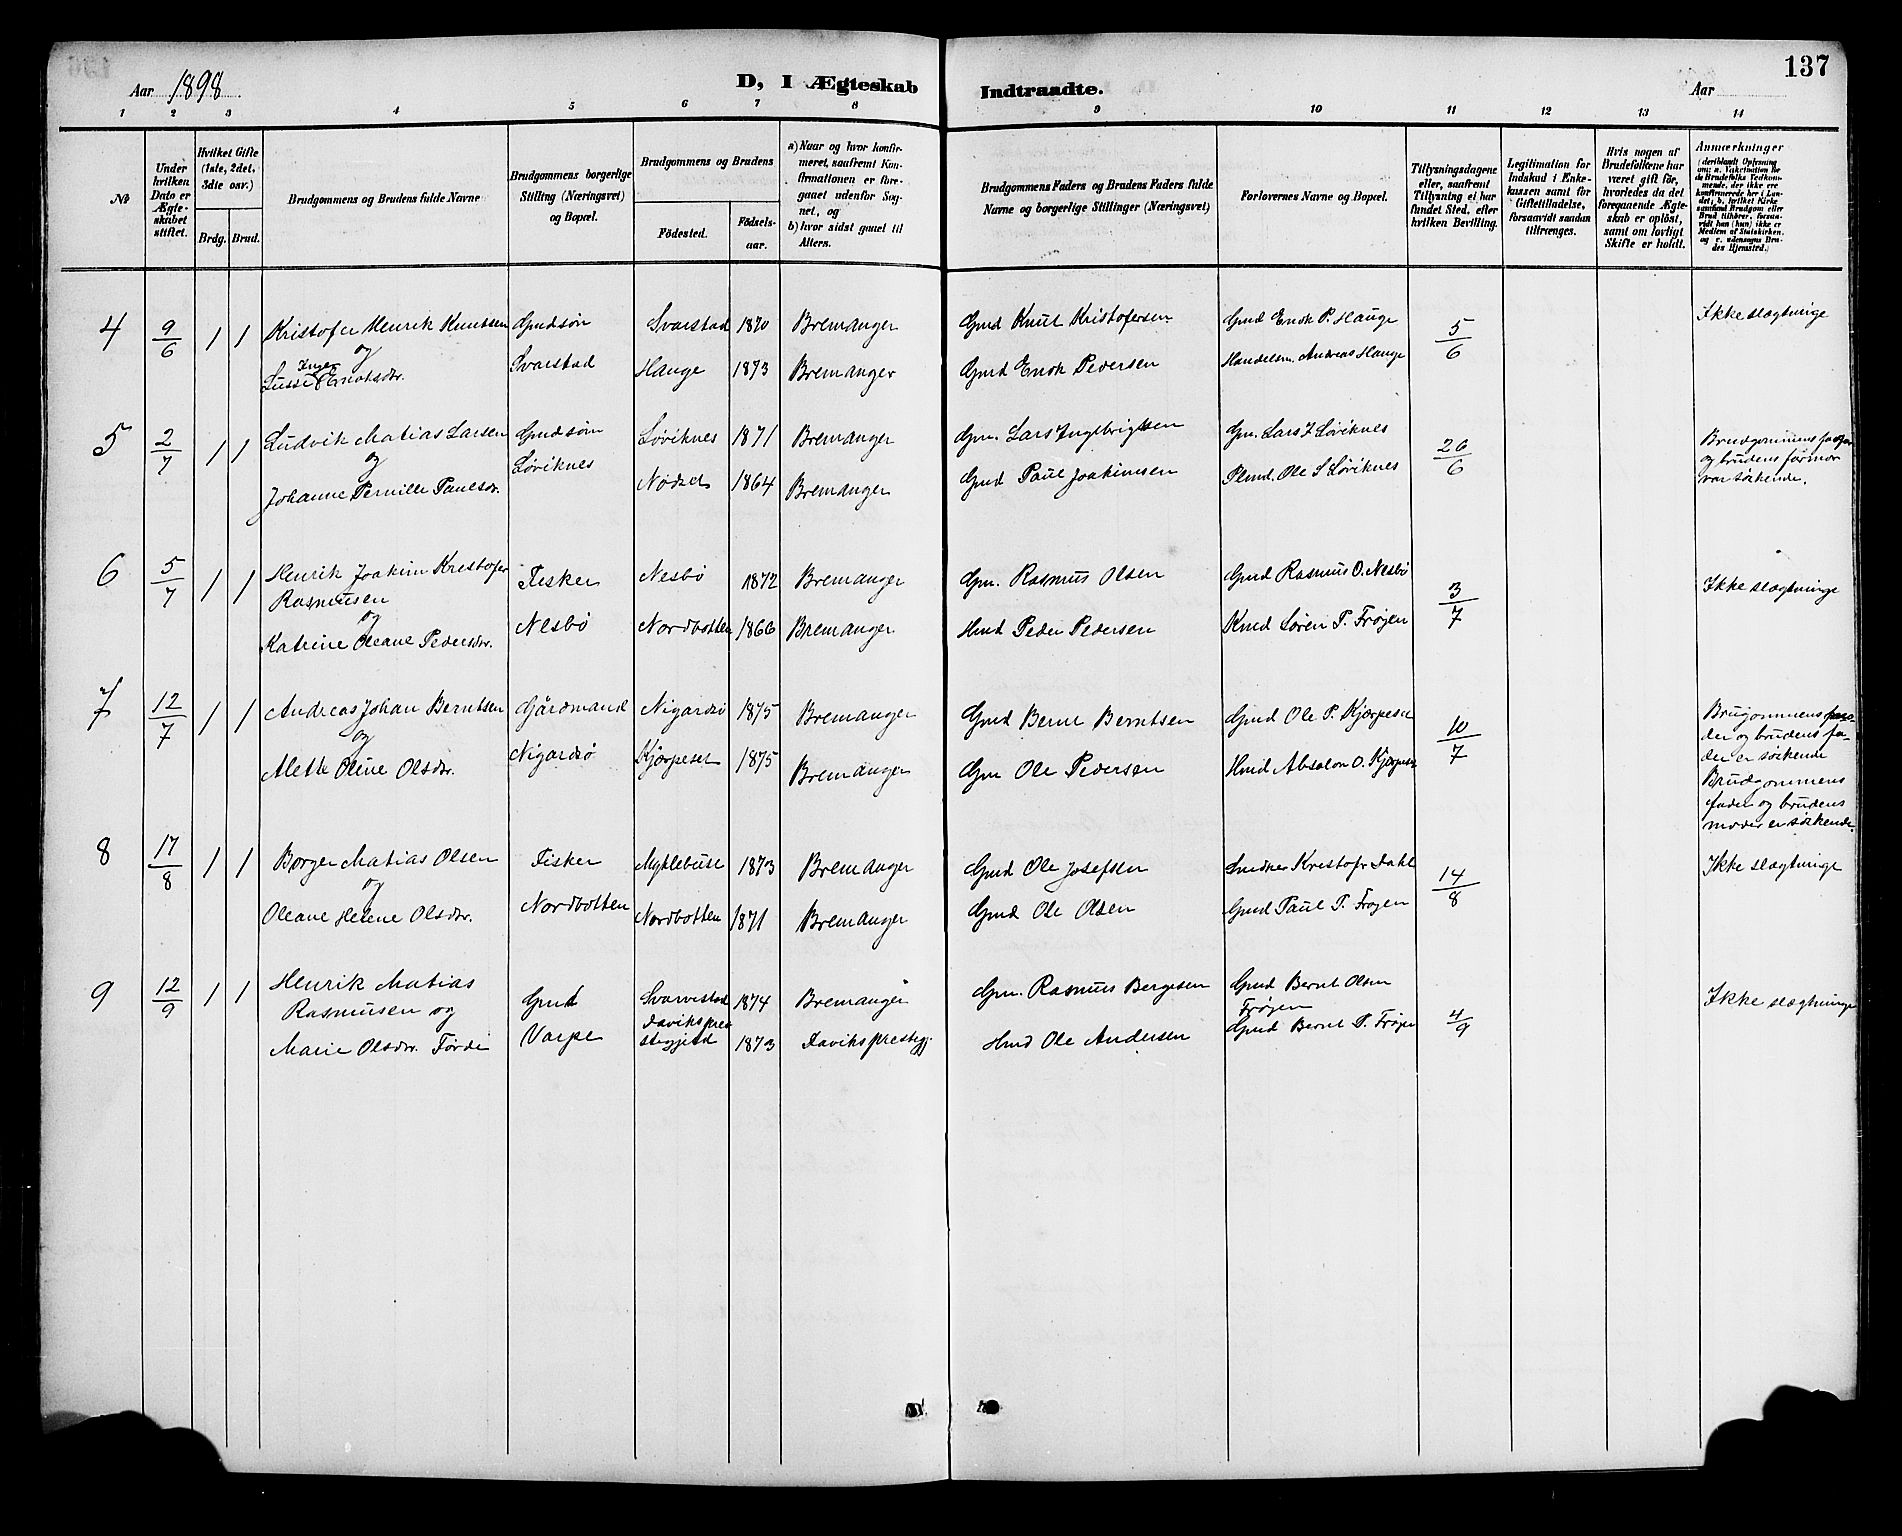 137
Aar 1898 D, I Ægteskab Indtraadte. Aar
1 2 3 4 5 6 7 8 9 10 11 12 13 14
№
Under hvilken Dato er Ægteskabet stiftet.
Hvilket Gifte (1ste, 2det, 3die osv.)
Brdg. Brud.
Brudgommens og Brudens fulde Navne
Brudgommens borgerlige Stilling (Næringsvei) og Bopæl.
Brudgommens og Brudens
Fødested. Fødselsaar.
a) Naar og hvor konfirmeret, saafremt Konfirmationen er foregaaet udenfor Sognet, og
b) hvor sidst gaaet til Alters.
Brudgommens Faders og Brudens Faders fulde Navne og borgerlige Stillinger (Næringsvei)
Forlovernes Navne og Bopæl.
Tillysningsdagene eller, saafremt Tillysning ei har fundet Sted, efter hvilken Bevilling.
Legitimation for Indskud i Enkekassen samt for Giftetilladelse, forsaavidt saadan tiltrænges.
Hvis nogen af Brudefolkene har været gift før, hvorledes da det foregaaende Ægteskab er opløst, samt om lovligt Skifte er holdt.
Anmærkninger
4 9/6 1 1 Kristofer Henrik Knutsen Gmdsøn Svarstad 1870 Bremanger Gmd Knut Kristofersen Gmd Enok P. Hauge 5/6 Ikke slægtninge
og
Inger
Svarstad Hauge 1873 Bremanger Gmd Enok Pedersen Handelsm. Andreas Hauge
5 2/7 1 1 Ludvik Matias Larsen Gmdsøn Løviknes 1871 Bremanger Gm. Lars Ingebrigtsen Gm. Lars I Løviknes 26/6 Brudgommens farfar
og Løviknes og brudens farmor
Johanne Pernille Paulsdr. Nødset 1864 Bremanger Gmd Paul Joakimsen Plmd. Ole S Løviknes var søskende.
6 5/7 1 1 Henrik Joakim Kristofer Fisker Nesbö 1872 Bremanger Gm. Rasmus Olsen Gmd Rasmus O. Nesbö 3/7 Ikke slægtninge
Rasmussen
og
Katrine Oleane Pedersdr. Nesbö Nordbotten 1866 Bremanger Hmd Peder Pedersen Kmd Søren P. Frøjen
7 12/7 1 1 Andreas Johan Berntsen Gårdmand Nigardsö 1875 Bremanger Gmd Bernt Berntsen Gmd Ole P. Kjærpeset 10/7 Brugommens
og der og brudens fa-
Mette Oline Olsdr. Nigardsö Kjærpeset 1875 Bremanger Gm Ole Pedersen Hmd Absalon O. Kjærpeset der er søskende
Brudgommens
fader og brudens
moder er søskende.
8 17/8 1 1 Børger Matias Olsen Fisker Myklebust 1873 Bremanger Gmd Ole Josefsen Snedker Kristofr Dahl 14/8 Ikke slægtninge
og
Oleane Helene Olsdr. Nordbotten Nordbotten 1871 Bremanger Gmd Ole Olsen Gmd Paul P. Frøyen
9 12/9 1 1 Henrik Matias Gmd Svarvestad 1874 Bremanger Gm. Rasmus Børgesen Gmd Bernt Olsen 4/9 Ikke slægtninge
Rasmusen og Frøjen
Marie Olsdr. Førde Varpe 1873 Daviks prestegj. Hmd Ole Andersen Gmd Bernt P. Frøjen